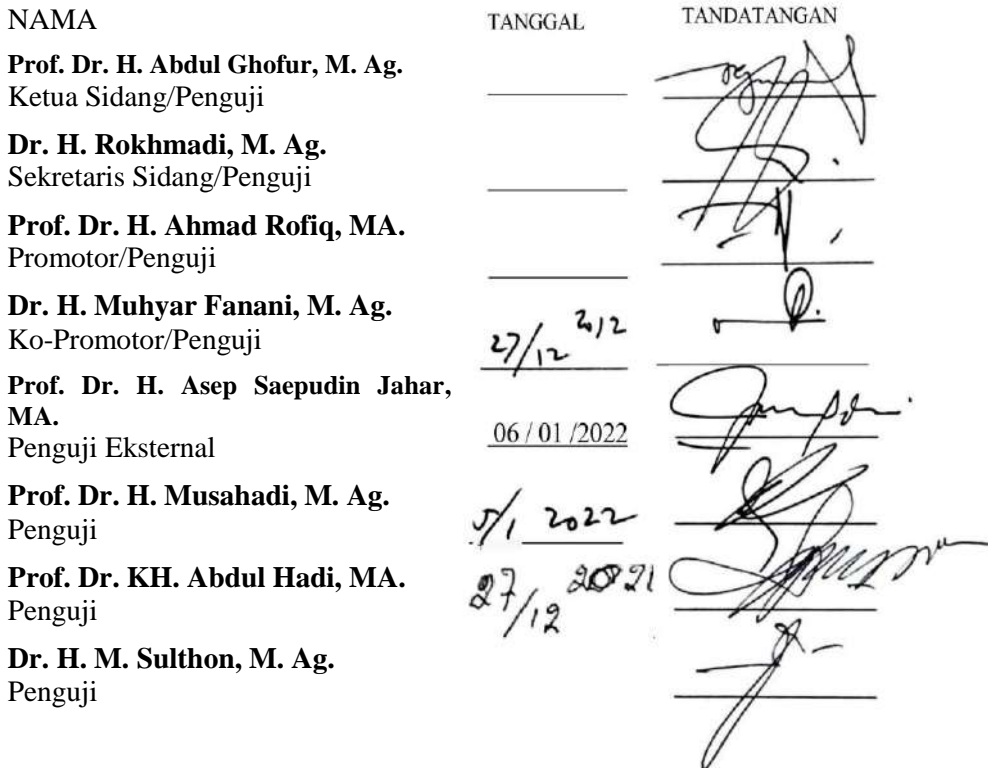 NAMA TANGGAL TANDATANGAN
Prof. Dr. H. Abdul Ghofur, M. Ag.
Ketua Sidang/Penguji
Dr. H. Rokhmadi, M. Ag.
Sekretaris Sidang/Penguji
Prof. Dr. H. Ahmad Rofiq, MA.
Promotor/Penguji
Dr. H. Muhyar Fanani, M. Ag.
Ko-Promotor/Penguji 27/12 2012
Prof. Dr. H. Asep Saepudin Jahar,
MA.
Penguji Eksternal 06 / 01 /2022
Prof. Dr. H. Musahadi, M. Ag.
Penguji 5/1 2022
Prof. Dr. KH. Abdul Hadi, MA.
Penguji 27/12 2021
Dr. H. M. Sulthon, M. Ag.
Penguji